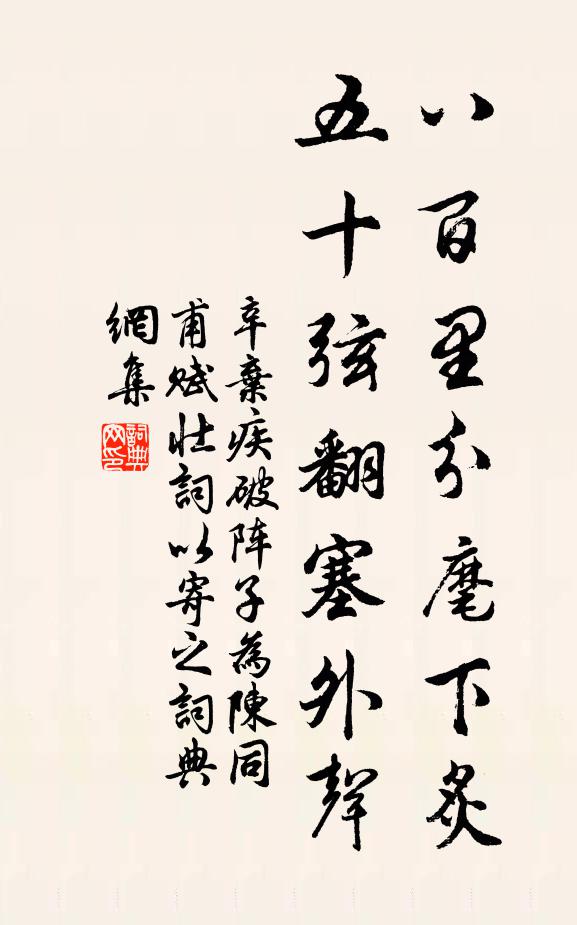 八百里分麾下炙
五十弦翻塞外聲
辛棄疾破阵子為陳同
甫賦壯詞以寄之詞典
網集
詞典
网印